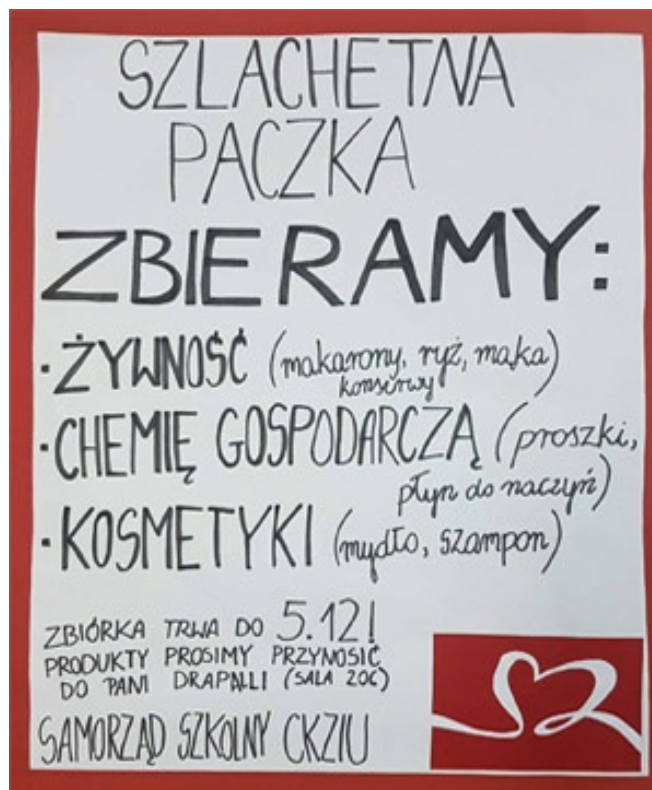 SZLACHETNA
PACZKA
ZBIERAMY:
· ŻYWNOŚĆ (makarony, ryż, mąka)
konserwy
· CHEMIĘ GOSPODARCZĄ (proszki,
płyn do naczyń)
· KOSMETYKI (mydło, szampon)
ZBIÓRKA TRWA DO 5.12!
PRODUKTY PROSIMY PRZYNOSIĆ
DO PANI DRAPALLI (SALA 206)
SAMORZĄD SZKOLNY CKZIU